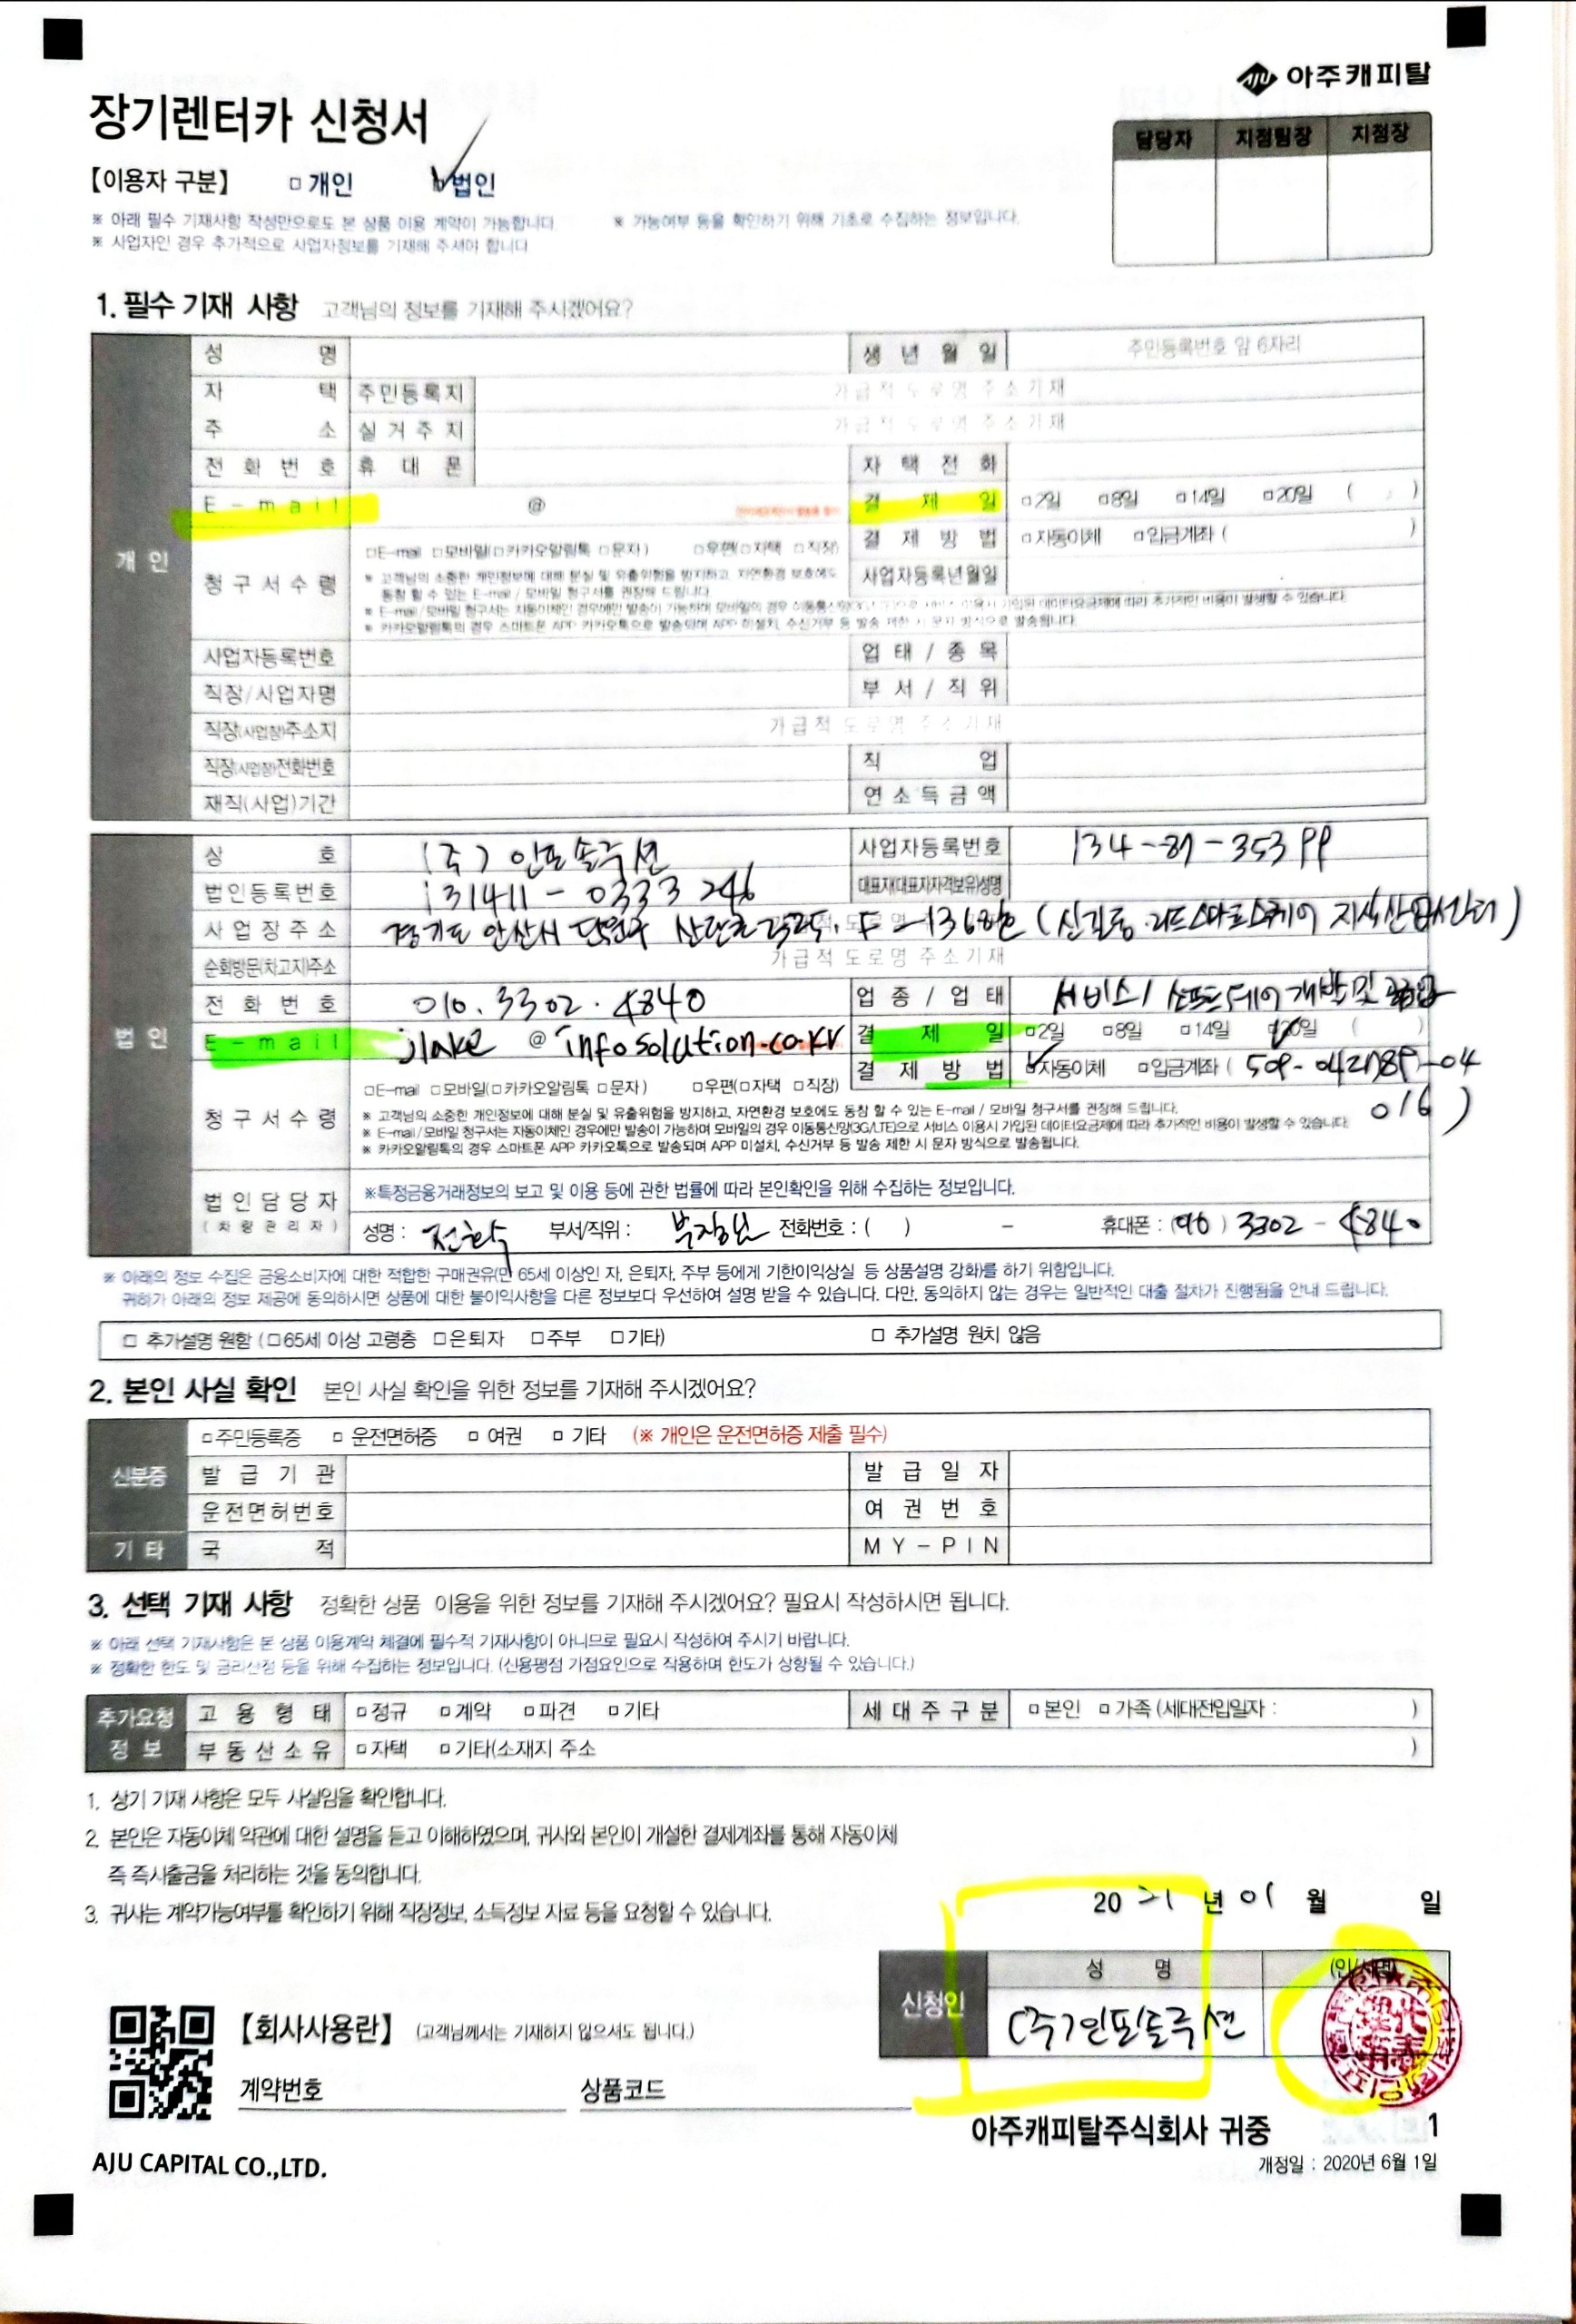 AJU 아주캐피탈
장기렌터카 신청서
담당자 지점팀장 지점장
【이용자 구분】 □ 개인 ☑ 법인
※ 아래 필수 기재사항 작성만으로도 본 상품 이용 계약이 가능합니다. ※ 가능여부 등을 확인하기 위해 기초로 수집하는 정보입니다.
※ 사업자인 경우 추가적으로 사업자정보를 기재해 주셔야 합니다
1. 필수 기재 사항 고객님의 정보를 기재해 주시겠어요?
개인
성 명 생 년 월 일 주민등록번호 앞 6자리
자 택 주민등록지 가급적 도로명 주소기재
주 소 실 거 주 지 가급적 도로명 주소기재
전 화 번 호 휴 대 폰 자 택 전 화
E - m a i l @ 결 제 일 □2일 □8일 □14일 □20일 ( )
결 제 방 법 □자동이체 □입금계좌 ( )
청구서수령 □E-mail □모바일(□카카오알림톡 □문자) □우편(□자택 □직장)
사업자등록년월일
※ 고객님의 소중한 개인정보에 대해 분실 및 유출위험을 방지하고, 자연환경 보호에도
동참 할 수 있는 E-mail / 모바일 청구서를 권장해 드립니다.
※ E-mail/모바일 청구서는 자동이체인 경우에만 발송이 가능하며 모바일의 경우 이동통신망(3G/LTE)으로 서비스 이용시 가입된 데이터요금제에 따라 추가적인 비용이 발생할 수 있습니다.
※ 카카오알림톡의 경우 스마트폰 APP 카카오톡으로 발송되며 APP 미설치, 수신거부 등 발송 제한 시 문자 방식으로 발송됩니다.
사업자등록번호 업 태 / 종 목
직장/사업자명 부 서 / 직 위
직장(사업장)주소지 가급적 도로명 주소기재
직장(사업장)전화번호 직 업
재직(사업)기간 연 소 득 금 액
법인
상 호 (주) 인포솔루션 사업자등록번호 134-81-35399
법인등록번호 131411 - 0333246 대표자(대표자자격보유)성명
사 업 장 주 소 경기도 안산시 단원구 F-136호 (신길동 리드스마트스퀘어 지식산업센터)
순회방문(차고지)주소 가급적 도로명 주소기재
전 화 번 호 010. 3302. 4840 업 종 / 업 태 서비스 / 소프트웨어 개발 및 공급
E - m a i l jlake @ infosolution.co.kr 결 제 일 □2일 □8일 □14일 ☑20일 ( )
결 제 방 법 ☑자동이체 □입금계좌 ( 509-042789-04
016 )
청구서수령 □E-mail □모바일(□카카오알림톡 □문자) □우편(□자택 □직장)
※ 고객님의 소중한 개인정보에 대해 분실 및 유출위험을 방지하고, 자연환경 보호에도 동참 할 수 있는 E-mail / 모바일 청구서를 권장해 드립니다.
※ E-mail/모바일 청구서는 자동이체인 경우에만 발송이 가능하며 모바일의 경우 이동통신망(3G/LTE)으로 서비스 이용시 가입된 데이터요금제에 따라 추가적인 비용이 발생할 수 있습니다.
※ 카카오알림톡의 경우 스마트폰 APP 카카오톡으로 발송되며 APP 미설치, 수신거부 등 발송 제한 시 문자 방식으로 발송됩니다.
법인담당자 ※특정금융거래정보의 보고 및 이용 등에 관한 법률에 따라 본인확인을 위해 수집하는 정보입니다.
(차량관리자) 성명 : 부서/직위 : 전화번호 : ( ) - 휴대폰 : (010) 3302 - 4840
※ 아래의 정보 수집은 금융소비자에 대한 적합한 구매권유(만 65세 이상인 자, 은퇴자, 주부 등에게 기한이익상실 등 상품설명 강화)를 하기 위함입니다.
귀하가 아래의 정보 제공에 동의하시면 상품에 대한 불이익사항을 다른 정보보다 우선하여 설명 받을 수 있습니다. 다만, 동의하지 않는 경우는 일반적인 대출 절차가 진행됨을 안내 드립니다.
□ 추가설명 원함 (□65세 이상 고령층 □은퇴자 □주부 □기타) □ 추가설명 원치 않음
2. 본인 사실 확인 본인 사실 확인을 위한 정보를 기재해 주시겠어요?
신분증 □주민등록증 □ 운전면허증 □ 여권 □ 기타 (※ 개인은 운전면허증 제출 필수)
발 급 기 관 발 급 일 자
운전면허번호 여 권 번 호
기 타 국 적 MY-PIN
3. 선택 기재 사항 정확한 상품 이용을 위한 정보를 기재해 주시겠어요? 필요시 작성하시면 됩니다.
※ 아래 선택 기재사항은 본 상품 이용계약 체결에 필수적 기재사항이 아니므로 필요시 작성하여 주시기 바랍니다.
※ 정확한 한도 및 금리산정 등을 위해 수집하는 정보입니다. (신용평점 가점요인으로 작용하며 한도가 상향될 수 있습니다.)
추가요청 고 용 형 태 □정규 □계약 □파견 □기타 세 대 주 구 분 □본인 □가족 (세대전입일자 : )
정 보 부 동 산 소 유 □자택 □기타(소재지 주소 )
1. 상기 기재 사항은 모두 사실임을 확인합니다.
2. 본인은 자동이체 약관에 대한 설명을 듣고 이해하였으며, 귀사와 본인이 개설한 결제계좌를 통해 자동이체
즉 즉시출금을 처리하는 것을 동의합니다.
3. 귀사는 계약가능여부를 확인하기 위해 직장정보, 소득정보 자료 등을 요청할 수 있습니다.
20 21 년 01 월 일
신청인 성 명 (인/서명)
(주)인포솔루션
【회사사용란】 (고객님께서는 기재하지 않으셔도 됩니다.)
계약번호 상품코드
아주캐피탈주식회사 귀중 1
AJU CAPITAL CO.,LTD.
개정일 : 2020년 6월 1일